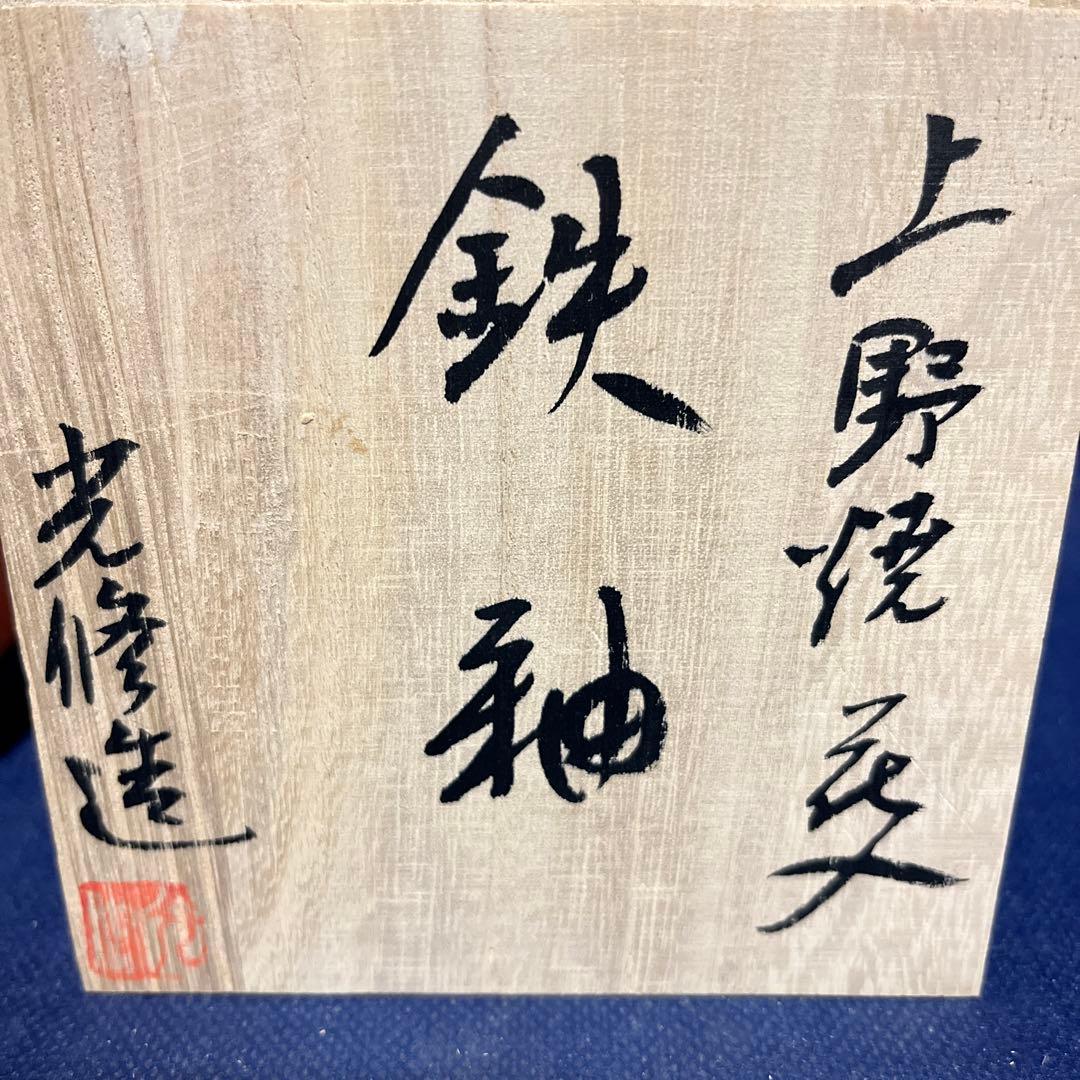 上野焼 花入
鉄釉
光修造